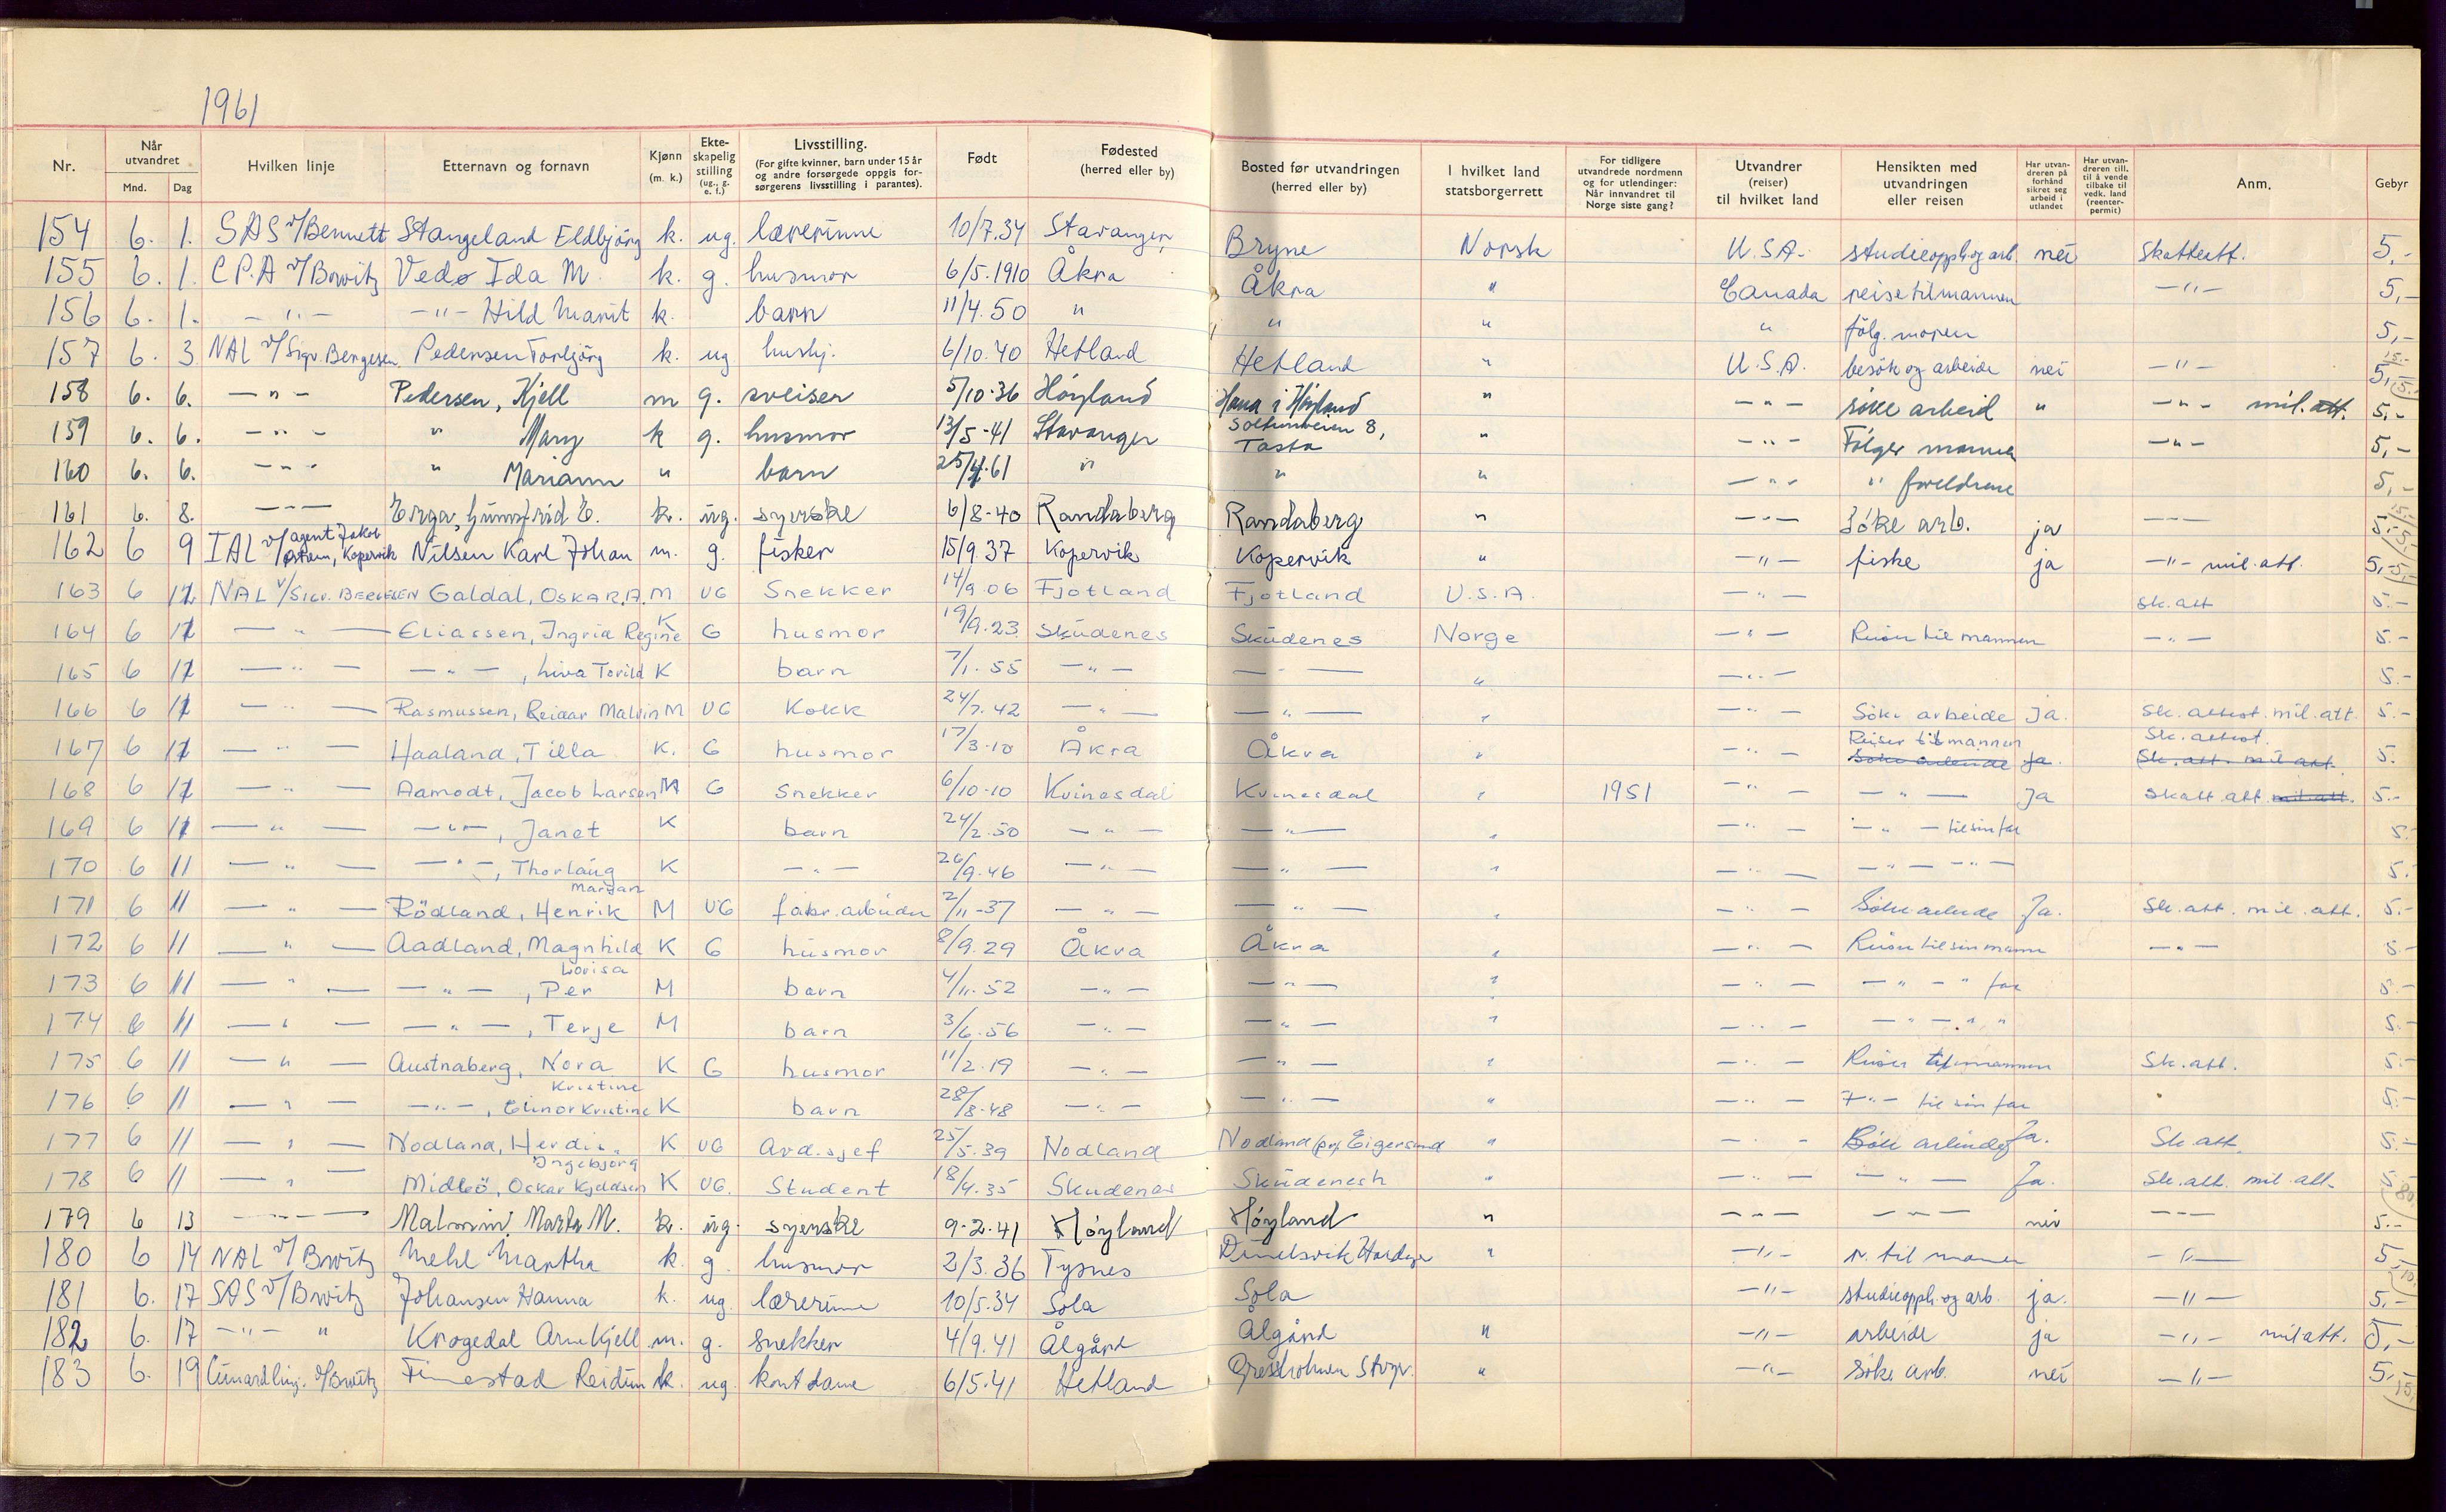 1961
Nr. | Når utvandret Mnd. Dag | Hvilken linje | Etternavn og fornavn | Kjønn (m. k.) | Ekte-skapelig stilling (ug., g. e. f.) | Livsstilling. (For gifte kvinner, barn under 15 år og andre forsørgede oppgis for-sørgerens livsstilling i parantes). | Født | Fødested (herred eller by) | Bosted før utvandringen (herred eller by) | I hvilket land statsborgerrett | For tidligere utvandrede nordmenn og for utlendinger: Når innvandret til Norge siste gang? | Utvandrer (reiser) til hvilket land | Hensikten med utvandringen eller reisen | Har utvan-dreren på forhånd sikret seg arbeid i utlandet | Har utvan-dreren till. til å vende tilbake til vedk. land (reenter-permit) | Anm. | Gebyr
154 6. 1. SAS v/Bennett Stangeland Eldbjörg k. ug. lærerinne 10/7.34 Stavanger Bryne Norsk U.S.A. studieopph. og arb. nei Skatteatt. 5,-
155 6. 1. C.P.A v/Berwitz Vedø Ida M. k. g. husmor 6/5.1910 Åkra Åkra " Canada reise til mannen -"- 5,-
156 6. 1. -"- -"- Hild Marit k. barn 11/4.50 " " " " fölg. moren 5,-
157 6. 3. NAL v/Sigv. Bergesen Pedersen Torbjörg k. ug hushj. 6/10.40 Hetland Hetland " U.S.A. besök og arbeide nei -"- 5,- 15.-
158 6. 6. -"- Pedersen, Kjell m g. sveiser 5/10-36 Höyland Hana i Höyland " -"- söke arbeid " -"- mil. att. 5,-
159 6. 6. -"- " Mary k g. husmor 13/5-41 Stavanger 8, Tasta " -"- Følger mannen -"- 5,-
160 6. 6. -"- " Mariann " barn 25/4.61 " " " -"- " foreldrene 5,-
161 6. 8. -"- Erga, E. k. ug. syerske 6/8-40 Randaberg Randaberg " -"- Söke arb. ja -"- 5.-
162 6 9 IAL v/agent Jakob Østrem, Kopervik Nilsen Karl Johan m. g. fisker 15/9.37 Kopervik Kopervik " -"- fiske ja -"- mil. att. 5,-
163 6 12 NAL v/Sigv. Bergesen Galdal, Oskar A. M UG Snekker 14/9.06 Fjotland Fjotland U.S.A. -"- Sk. att 5.-
164 6 12 -"- Eliassen, Ingrid Regine K G husmor 19/9.23 Skudenes Skudenes Norge -"- Reiser til mannen -"- 5.-
165 6 12 -"- -"-, Liva Torild K barn 7/1.55 -"- -"- " -"- 5.-
166 6 12 -"- Rasmussen, Reidar Malvin M UG Kokk 24/7.42 -"- -"- " -"- Söke arbeide Ja. Sk. attest. mil. att. 5.-
167 6 12 -"- Haaland, Tilla K. G husmor 17/3-10 Åkra Åkra " -"- Reiser til mannen Söke arbeide Ja. Sk. attest. Sk. att. mil att. 5.
168 6 12 -"- Aamodt, Jacob Larsen M G Snekker 6/10-10 Kvinesdal Kvinesdal " 1951 -"- -"- Ja Skatt att mil att. 5.-
169 6 12 -"- -"-, Janet K barn 24/2.50 -"- -"- " -"- -"- til sin far 5.
170 6 11 -"- -"-, Thorlaug K -"- 26/9.46 -"- -"- " -"- -"- -"- 5.
171 6 11 -"- Rödland, Henrik Marian M UG fabr. arbeider 2/11-37 -"- -"- " -"- Söke arbeide Ja. Sk. att. mil. att. 5.-
172 6 11 -"- Aadland, Magnhild Lovisa K G husmor 8/9.29 Åkra Åkra " -"- Reiser til sin mann -"- 5.-
173 6 11 -"- -"-, Per M barn 4/11.52 -"- -"- " -"- -"- " far 5.-
174 6 11 -"- -"-, Terje M barn 3/6.56 -"- -"- " -"- -"- " " 5.-
175 6 11 -"- Austnaberg, Nora Kristine K G husmor 11/2.19 -"- -"- " -"- Reiser til mannen Sk. att. 5.-
176 6 11 -"- -"-, Elinor Kristine K barn 28/8.48 -"- -"- " -"- -"- til sin far 5.-
177 6 11 -"- Nodland, Herdis Ingebjørg K UG Avd. sjef 25/5.39 Nodland Nodland pr. Eigersund " -"- Söke arbeide Ja. Sk. att. 5.-
178 6 11 -"- Midbö, Oskar Kjeldsen K UG. Student 18/4.35 Skudenes Skudenesh " -"- -"- Ja. Sk. att. mil att. 5.- 80.-
179 6 13 -"- Malmin, Marta M. k. ug. syerske 9.2.41 Höyland Höyland " -"- -"- nei -"- 5.-
180 6 14 NAL v/Berwitz Mehl Martha k. g. husmor 2/3.36 Tysnes " -"- r. til mannen -"- 5,- 10.
181 6. 17 SAS v/Berwitz Johansen Hanna k. ug. lærerinne 10/5.34 Sola Sola " -"- studieopph. og arb. ja. -"- 5,-
182 6. 17 -"- " Krogedal Arne Kjell m. g. Snekker 4/9.41 Ålgård Ålgård " -"- arbeide ja -"- mil att. 5,-
183 6. 19 Cunardlinj. v/Berwitz Finnestad Reidun k. ug. kontdame 6/5.41 Hetland Gresholmen Stvgr. " -"- söke arb. nei -"- 5,- 15.